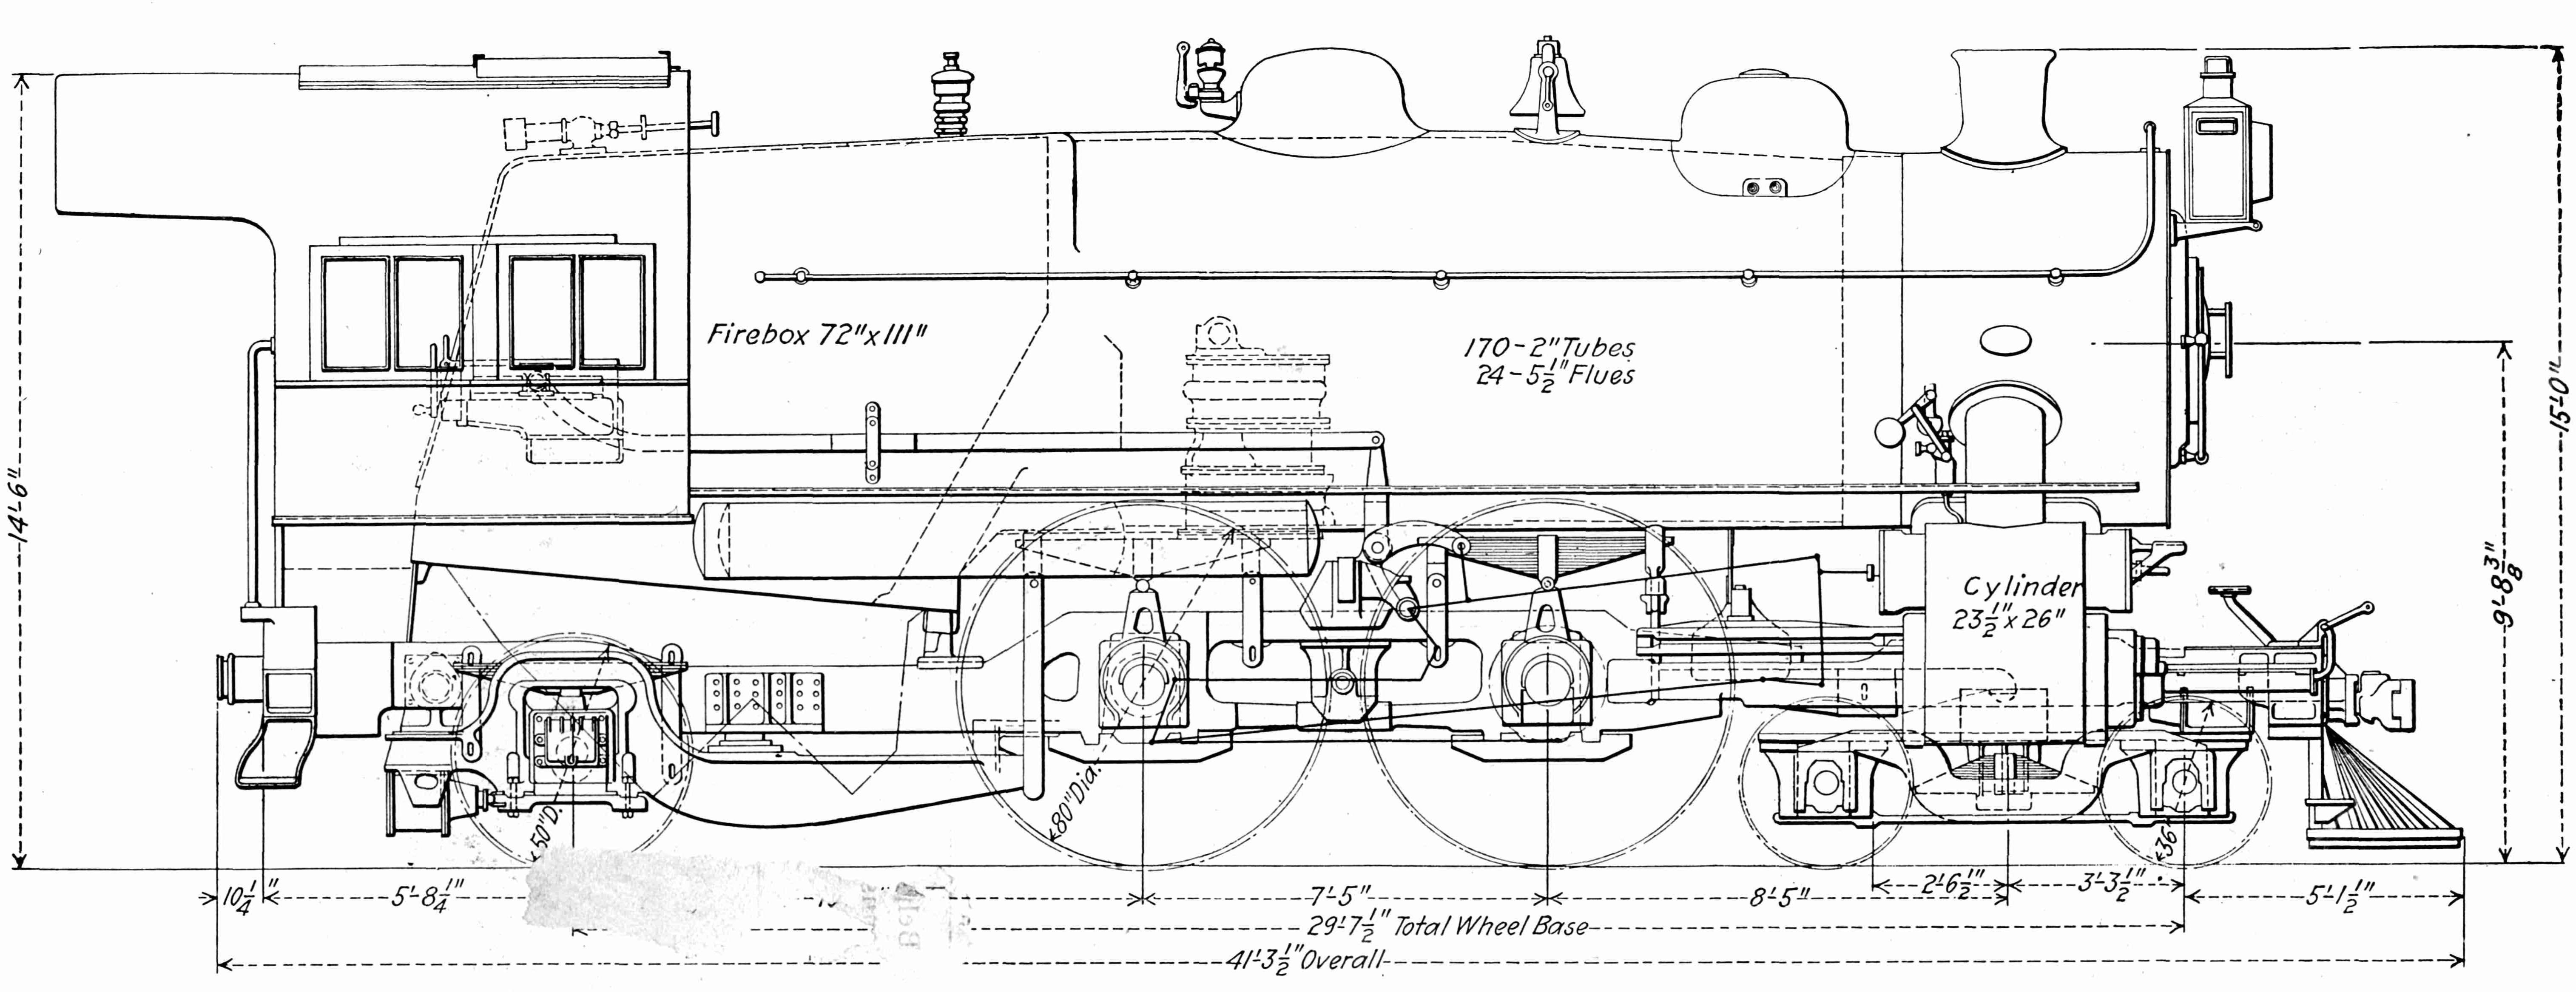 Firebox 72"x111"
170-2"Tubes
24-5½"Flues
14'-6"
15'-0"
9'-8⅜"
Cylinder
23½"x26"
50"D.
80"Dia.
36"
10¼"
5'-8¼"
7'-5"
8'-5"
2'-6½"
3'-3½"
5'-1½"
29'-7½" Total Wheel Base
41'-3½" Overall